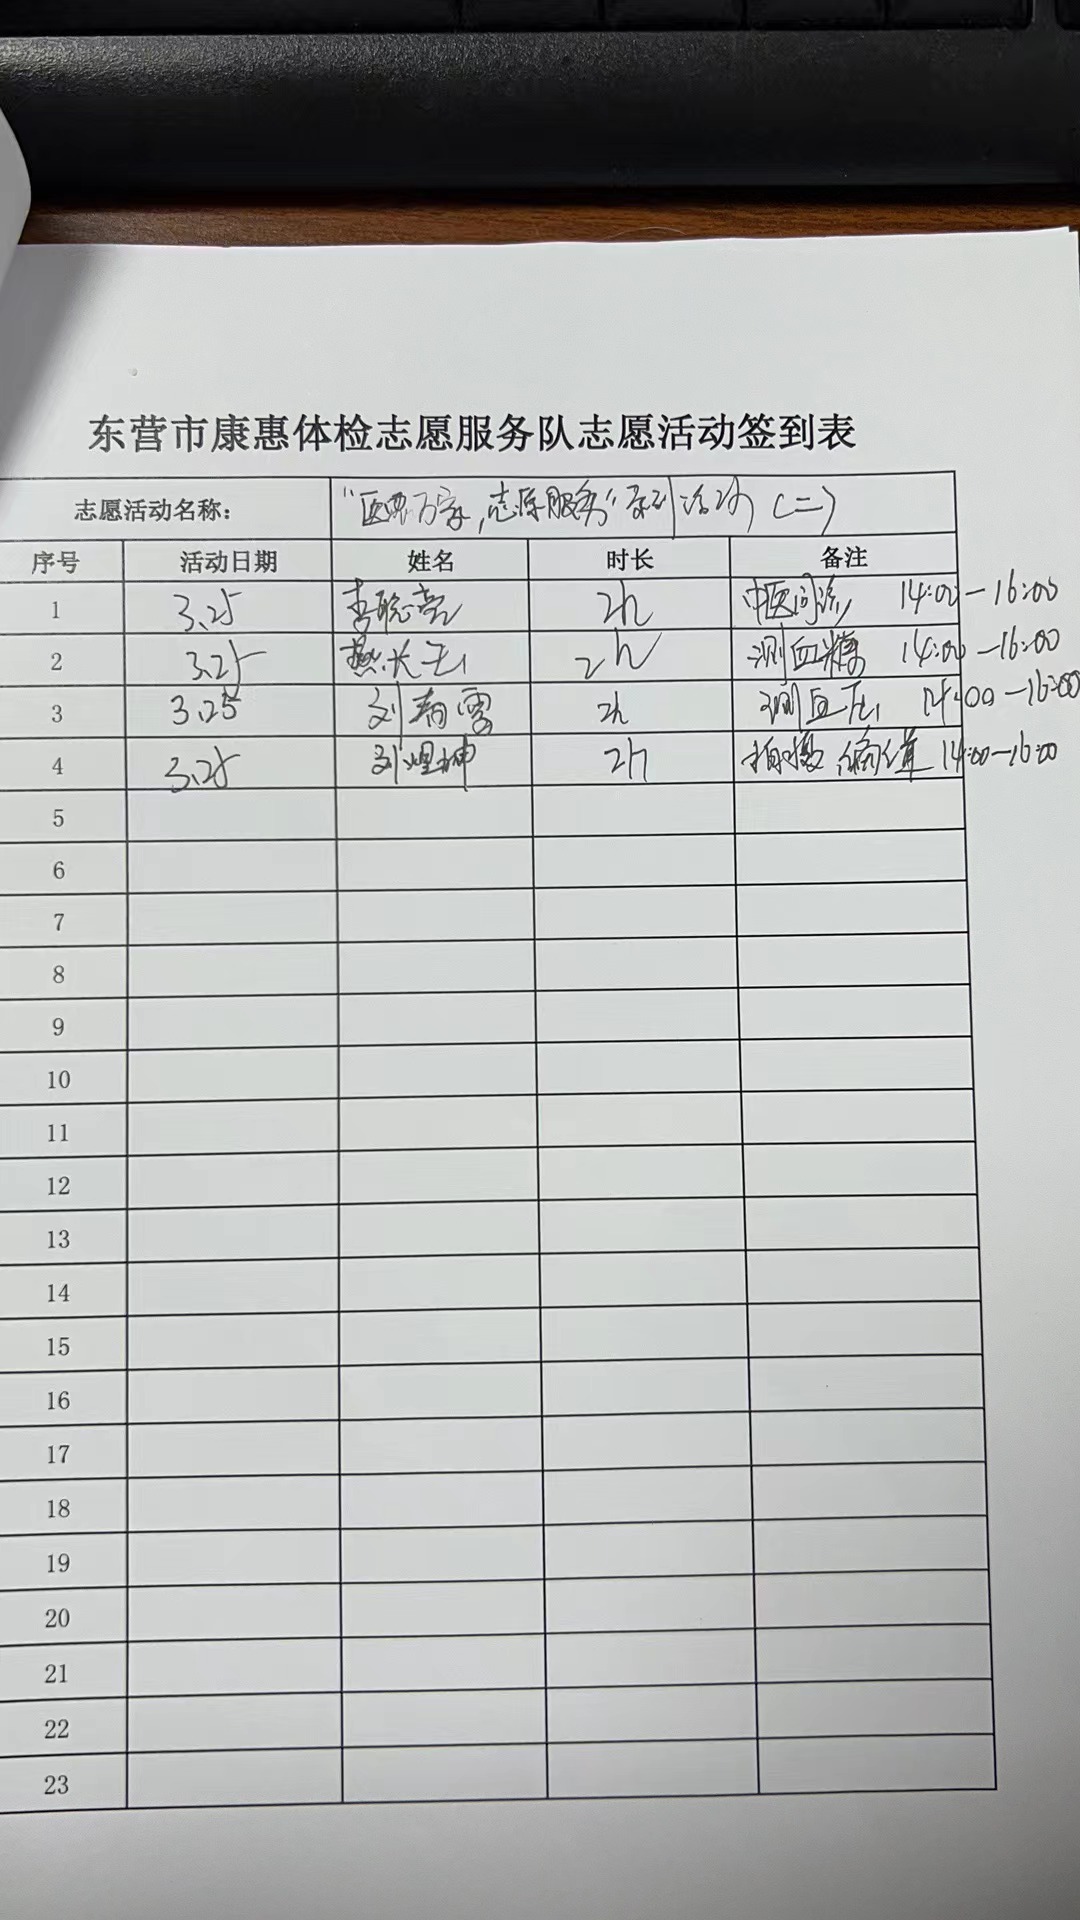 东营市康惠体检志愿服务队志愿活动签到表
志愿活动名称： "医惠万家，志愿服务"系列活动（二）
序号 活动日期 姓名 时长 备注
1 3.25 李聪亮 2h 中医问诊 14:00-16:00
2 3.25 燕 2h 测血糖 14:00-16:00
3 3.25 刘春雪 2h 测血压 14:00-16:00
4 3.25 刘煜坤 2h 拍摄 14:00-16:00
5
6
7
8
9
10
11
12
13
14
15
16
17
18
19
20
21
22
23